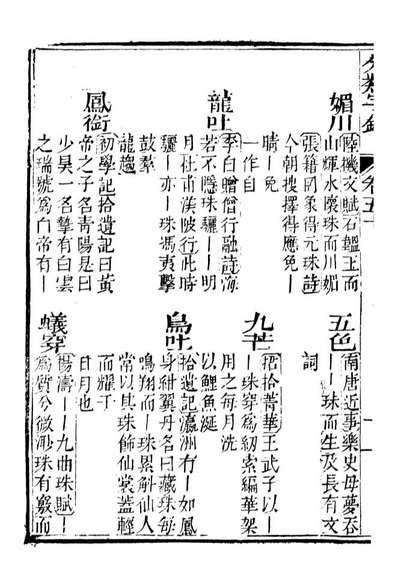 卷五十
媚川
陸機文賦石韞玉而
山輝水懷珠而川媚
張籍罔象得元珠詩
今朝搜擇得應免｜
晴｜免
一作自
五色
南唐近事樂史母夢吞
｜｜珠而生及長有文
詞
龍吐
李白贈僧行融詩海
若不隱珠驪｜｜明
月杜甫渼陂行此時
驪｜亦｜珠馮夷擊
鼓羣
龍趨
九芒
拾菁華王武子以｜
｜珠穿爲紉索編華架
用之每月洗
以鯉魚涎
鳳銜
初學記拾遺記曰黃
帝之子名青陽是曰
少昊一名摯有白雲
之瑞號爲白帝有｜
鳥吐
拾遺記瀛洲有｜如鳳
身紺翼丹名曰藏珠每
鳴翔而｜珠累斛仙人
常以其珠飾仙裳蓋輕
而耀于
日月也
蟻穿
楊濤｜｜九曲珠賦｜
爲質兮微渺珠有竅而